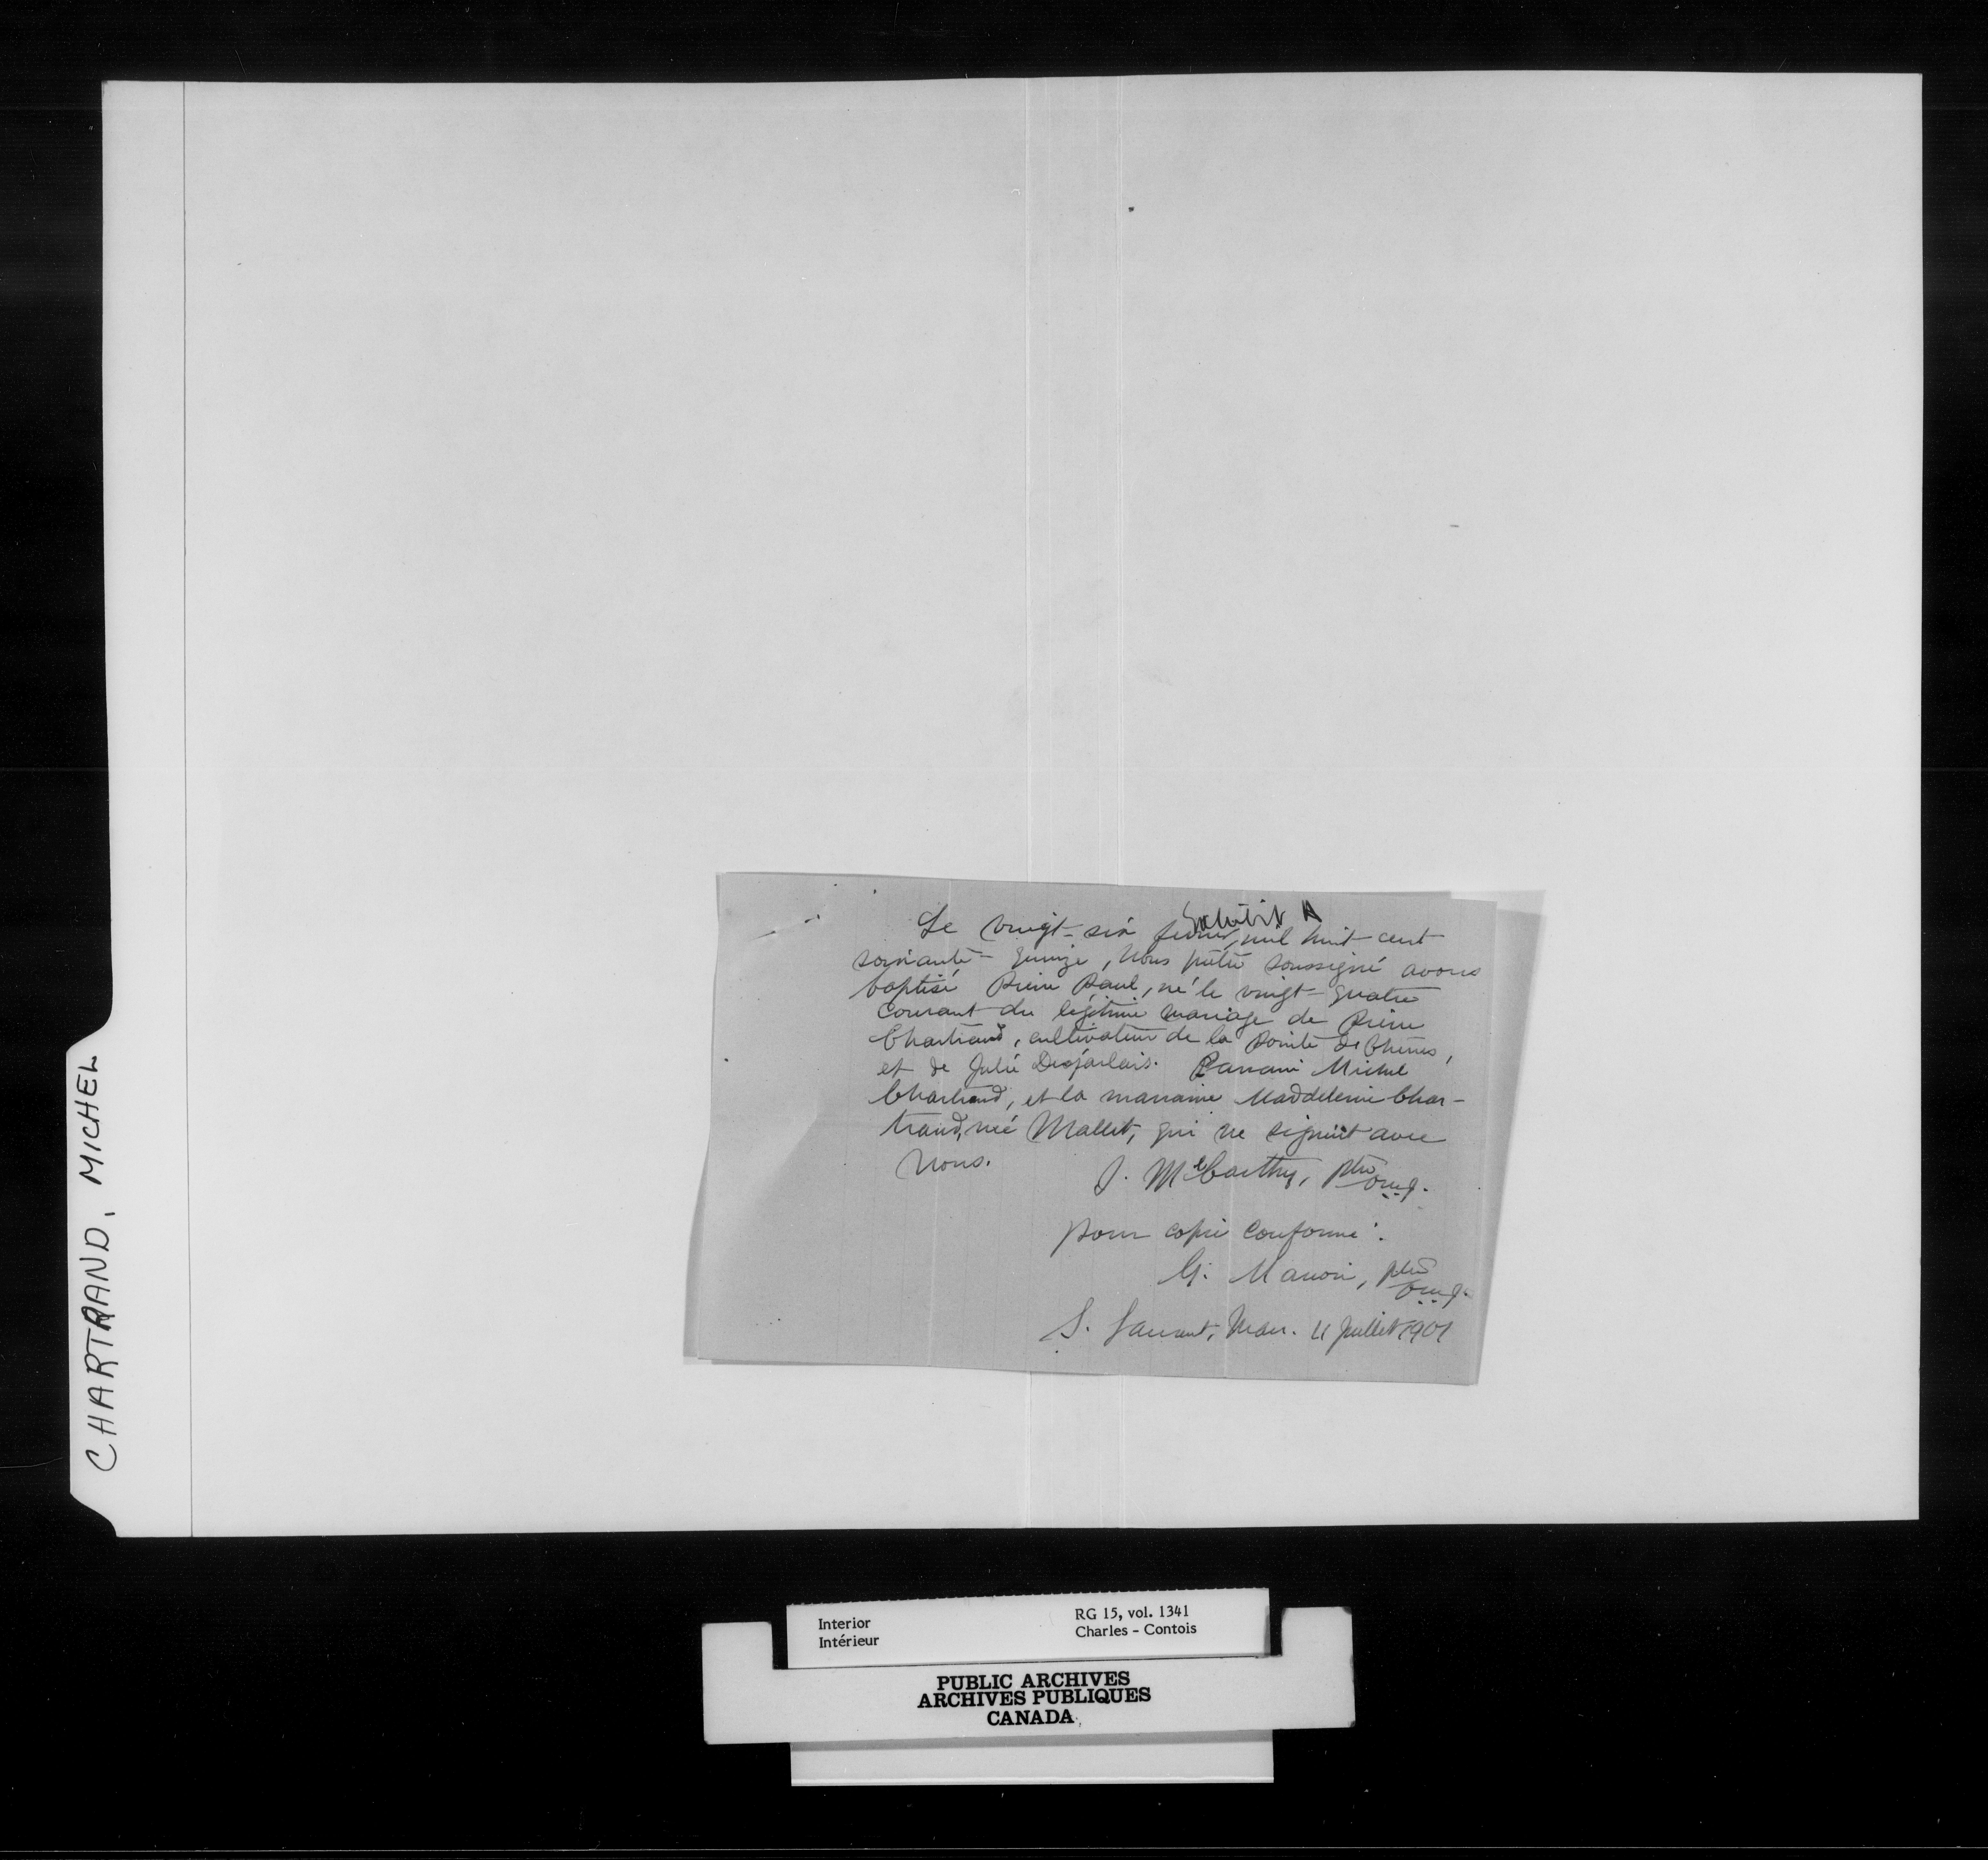 CHARTRAND, MICHEL
Exhibit A
Le vingt-six février, mil huit cent
soixante-quinze, Nous prêtre soussigné avons
baptisé Pierre Paul, né le vingt-quatre
courant du légitime mariage de Pierre
Chartrand, cultivateur de la Pointe des Chênes,
et de Julie Desjarlais. Parrain Michel
Chartrand, et la marraine Maddeleine Char-
trand, née Mallet, qui ne signent avec
Nous.
J. McCarthy, ptre
o.m.i.
pour copie conforme:
ptre
o.m.i.
S. Laurent, Man. 11 Juillet 1901
Interior
Intérieur
RG 15, vol. 1341
Charles - Contois
PUBLIC ARCHIVES
ARCHIVES PUBLIQUES
CANADA